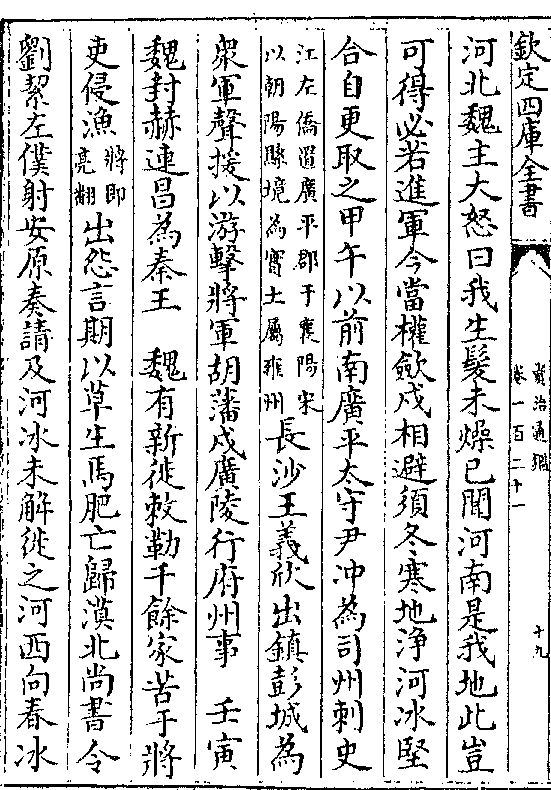 欽定四庫全書
資治通鑑
卷一百二十一
十九
河北魏主大怒曰我生髮未燥已聞河南是我地此豈
可得必若進軍今當權斂戍相避須冬寒地浄河冰堅
合自更取之甲午以前南廣平太守尹沖為司州刺史
江左僑置廣平郡于襄陽宋
以朝陽縣境為實土屬雍州
長沙王義欣出鎮彭城為
衆軍聲援以游擊將軍胡藩戍廣陵行府州事　壬寅
魏封赫連昌為秦王　魏有新徙敕勒千餘家苦于將
吏侵漁
將即
亮翻
出怨言期以草生馬肥亡歸漠北尚書令
劉絜左僕射安原奏請及河冰未解徙之河西向春冰